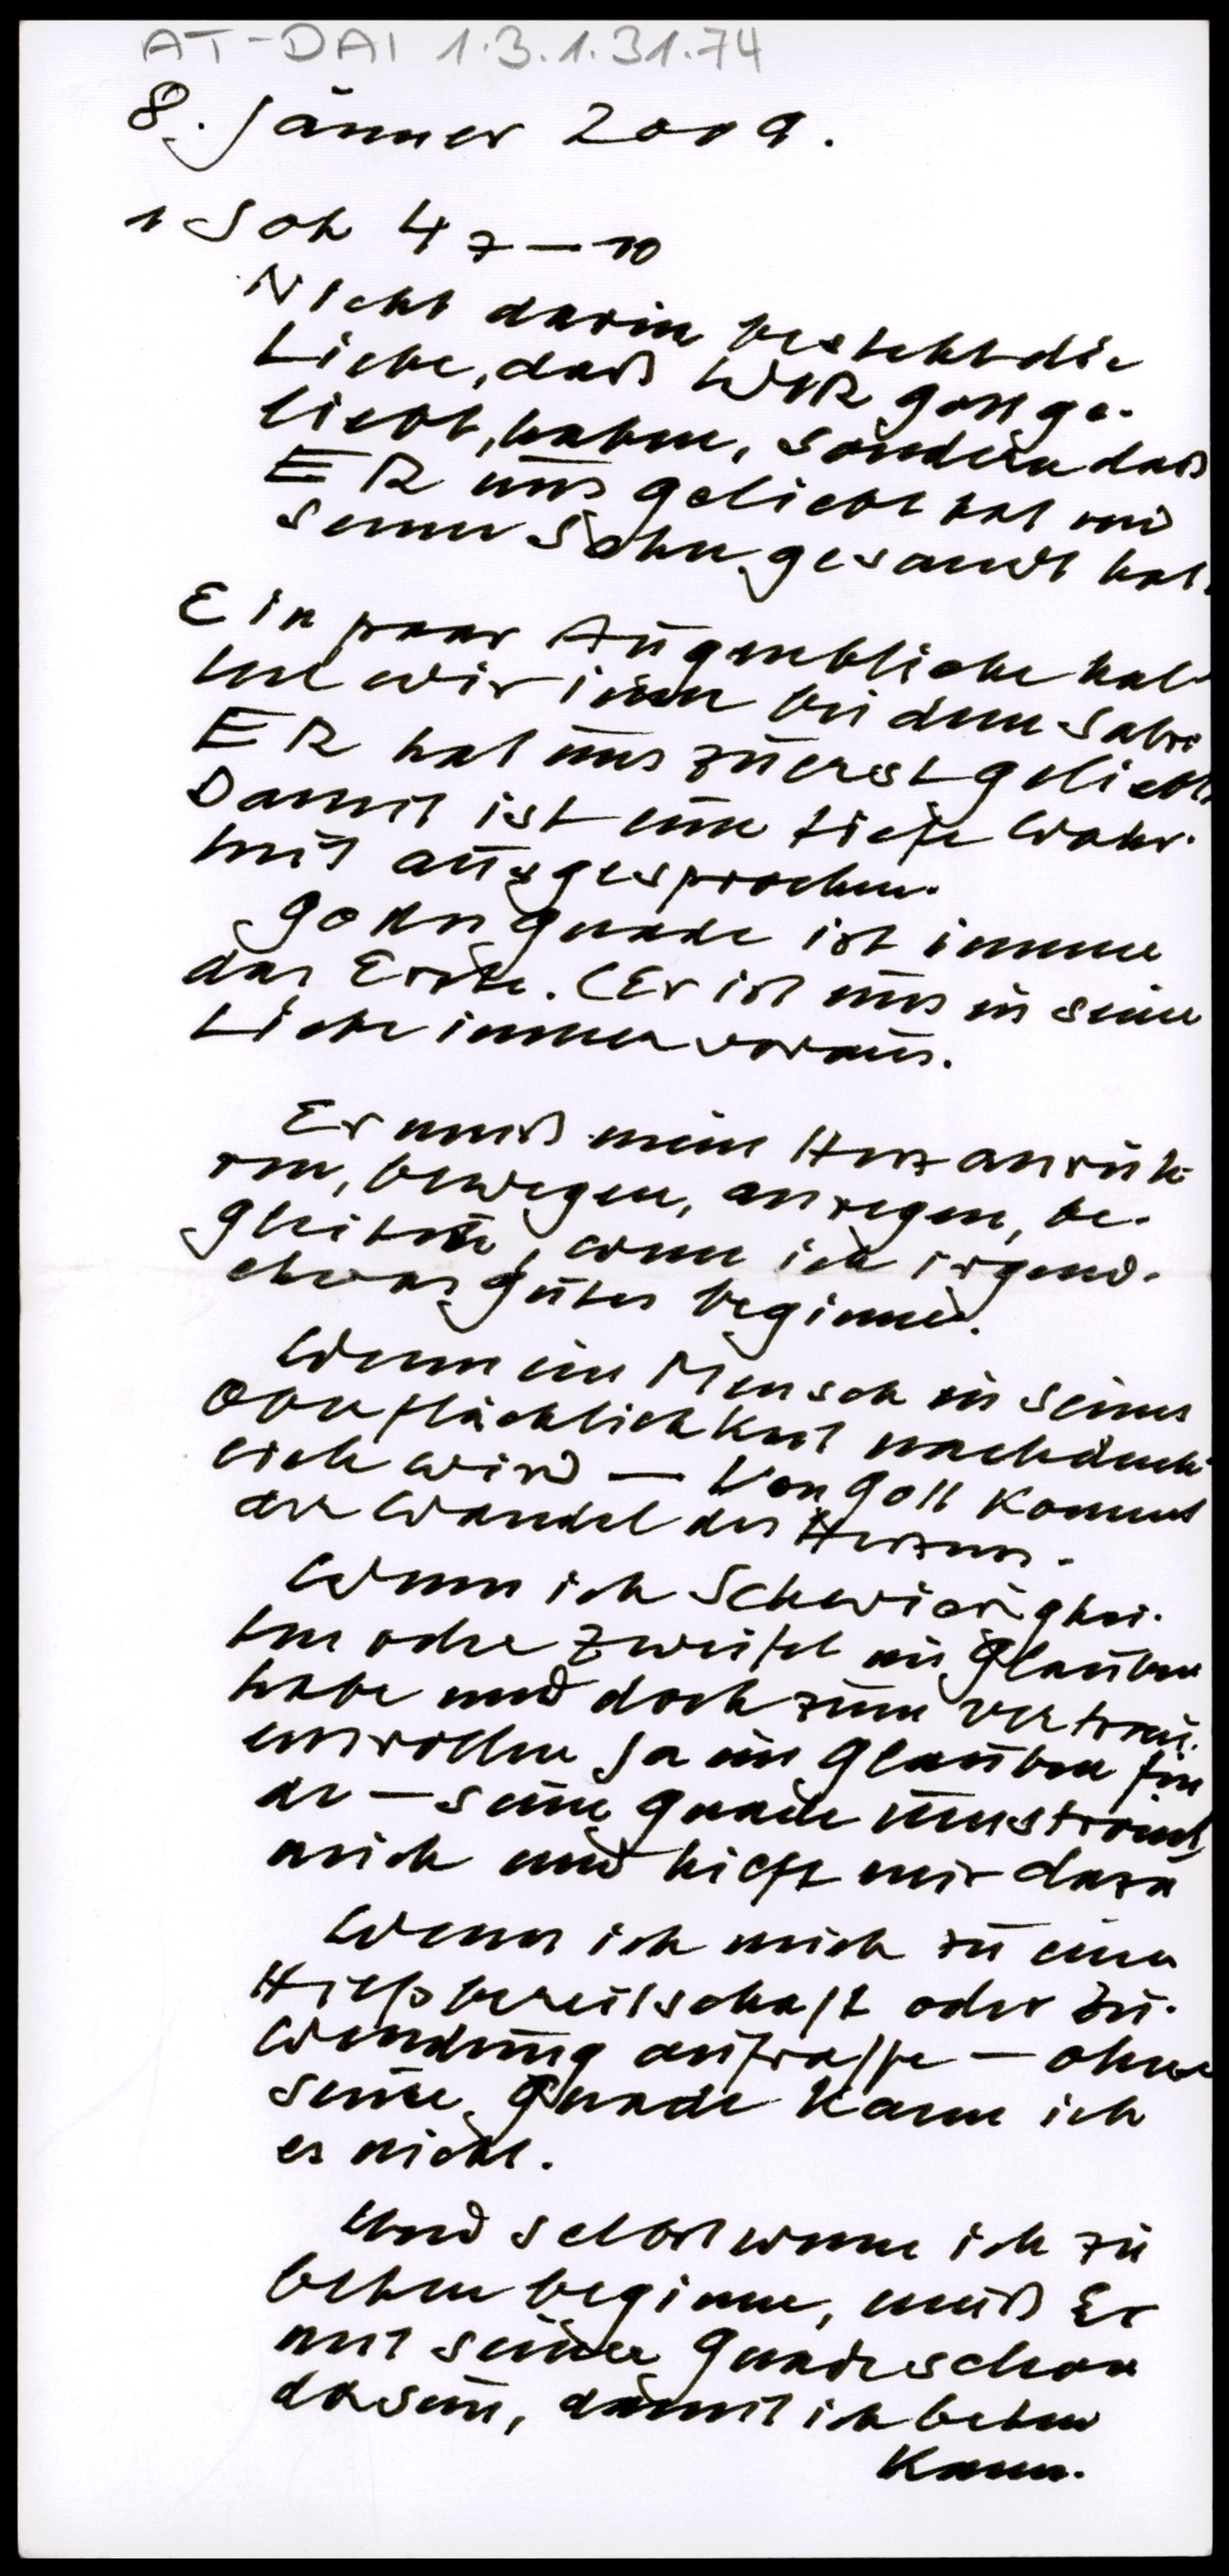 AT-DAI 1.3.1.31.74
8. Jänner 2009.
1 Joh 4 7-10
Nicht darin besteht die
Liebe, daß WIR Gott ge-
liebt, haben, sondern daß
ER uns geliebt hat und
seinen Sohn gesandt hat.
Ein paar Augenblicke hal-
ten wir inne bei dem Satz
ER hat uns zuerst geliebt.
Damit ist eine tiefe Wahr-
heit ausgesprochen.
Gottes Gnade ist immer
das Erste. (Er ist uns in seiner
Liebe immer voraus.
Er muß mein Herz anrüh-
ren, bewegen, anregen, be-
gleiten, wenn ich irgend-
etwas Gutes beginne.
Wenn ein Mensch in seiner
Oberflächlichkeit nachdenk-
lich wird — Von Gott kommt
der Wandel des Herzens.
Wenn ich Schwierigkei-
ten oder Zweifel im Glauben
habe und doch zum vertrau-
ensvollen Ja im Glauben fin
de — seine Gnade umströmt
mich und hilft mir dazu
Wenn ich mich zu einer
Hilfsbereitschaft oder Zu-
wendung aufraffe — ohne
seine Gnade kann ich
es nicht.
Und selbst wenn ich zu
beten beginne, muß Er
mit seiner Gnade schon
da sein, damit ich beten
kann.